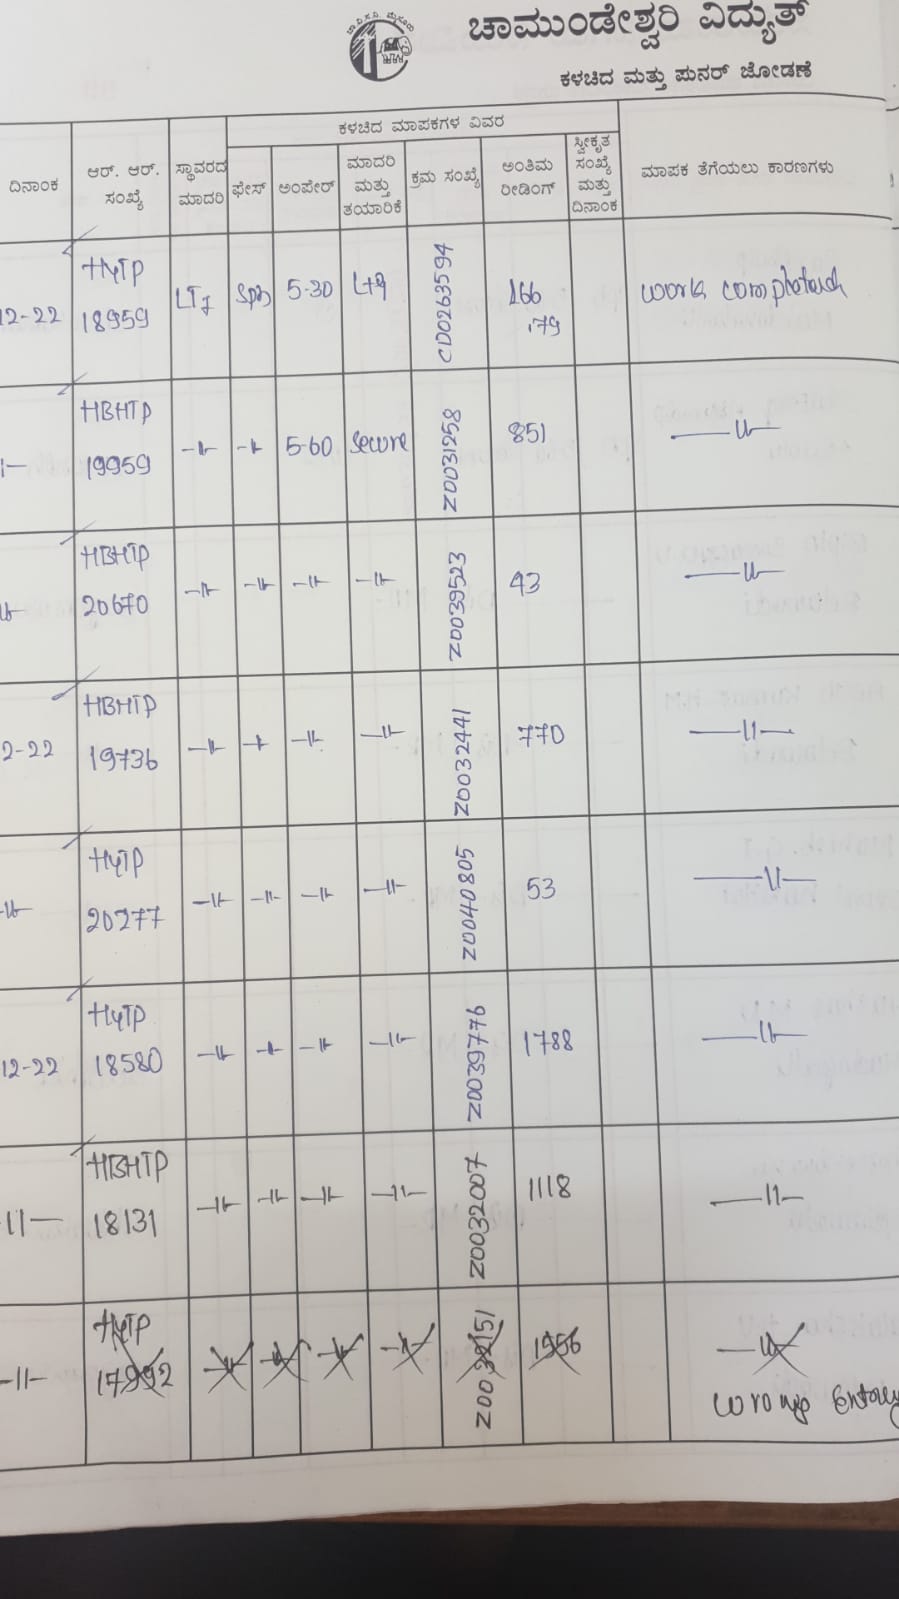 ಚಾಮುಂಡೇಶ್ವರಿ ವಿದ್ಯುತ್
ಕಳಚಿದ ಮತ್ತು ಪುನರ್ ಜೋಡಣೆ
ದಿನಾಂಕ ಆರ್. ಆರ್. ಸಂಖ್ಯೆ ಸ್ಥಾವರದ ಮಾದರಿ ಕಳಚಿದ ಮಾಪಕಗಳ ವಿವರ ಮಾಪಕ ತೆಗೆಯಲು ಕಾರಣಗಳು
ಫೇಸ್ ಅಂಪೇರ್ ಮಾದರಿ ಮತ್ತು ತಯಾರಿಕೆ ಕ್ರಮ ಸಂಖ್ಯೆ ಅಂತಿಮ ರೀಡಿಂಗ್ ಸ್ವೀಕೃತ ಸಂಖ್ಯೆ ಮತ್ತು ದಿನಾಂಕ
12-22 HyTP 18959 5-30 CD0263594 166 .79 work
—11— HBHTP 19959 —11— —11— 5-60 Secure Z0031258 851 —11—
—11— HBHTP 20670 —11— —11— —11— —11— Z0039523 93 —11—
2-22 HBHTP 19736 —11— —11— —11— —11— Z0032441 770 —11—
—11— HyTP 20277 —11— —11— —11— —11— Z0040805 53 —11—
12-22 HyTP 18580 —11— —11— —11— —11— Z0039776 1788 —11—
—11— HBHTP 18131 —11— —11— —11— —11— Z0032007 1118 —11—
—11— HyTP 17992 —11— —11— —11— —11— 1956 —11—
wrong Entry